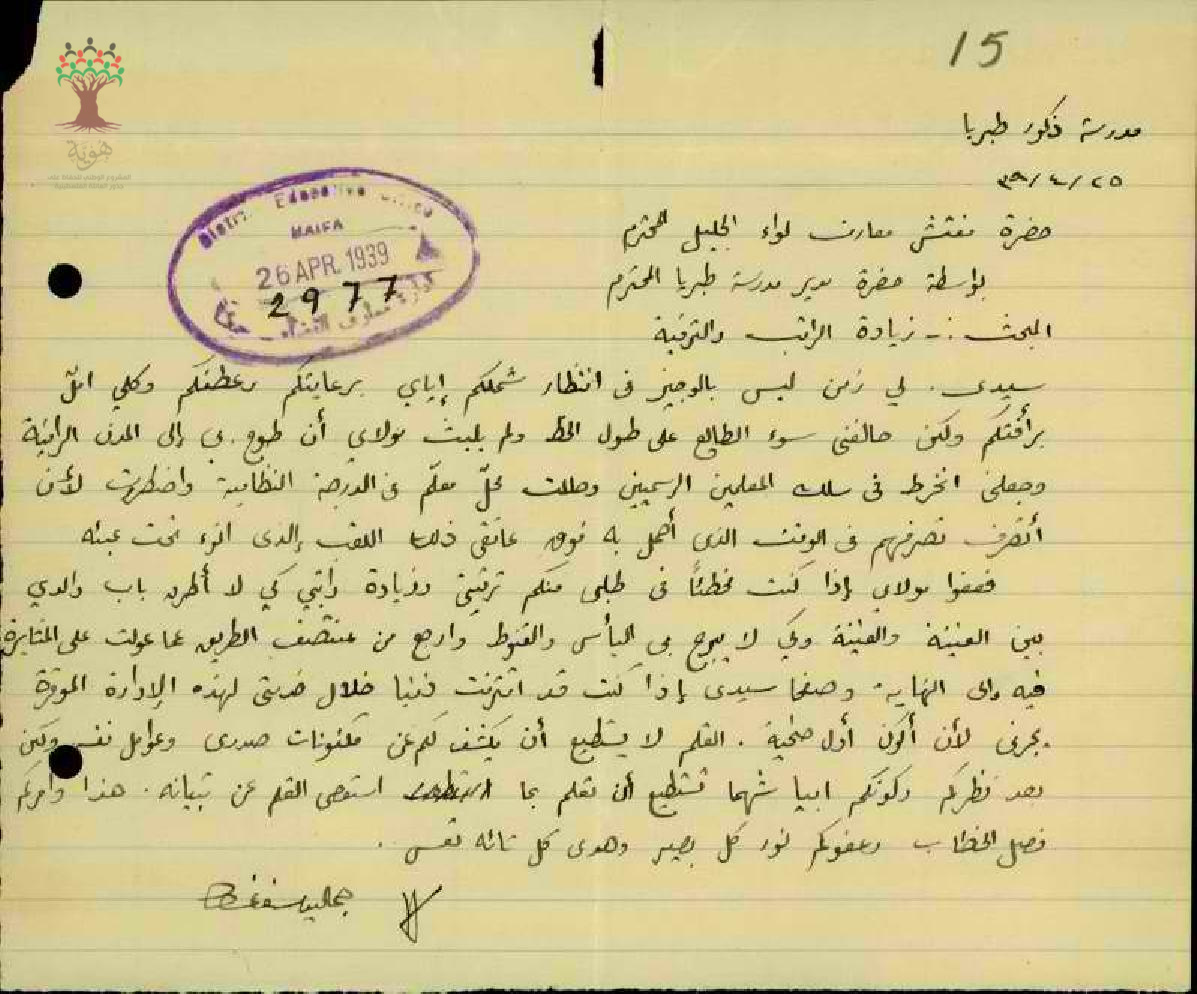 15
هوية
مدرسة ذكور طبريا
٢٥/٤/٣٩
District Education Office
HAIFA
26 APR. 1939
2977
حضرة مفتش معارف لواء الجليل المحترم
بواسطة حضرة مدير مدرسة طبريا المحترم
المبحث :- زيادة الراتب والترقية
سيدي. لي زمن ليس بالوجيز في انتظار شملكم إياي برعايتكم وعطفكم وكلي امل
برأفتكم ولكن حالفني سوء الطالع على طول الخط ولم يلبث مولاي أن طوح بي إلى المدن الراقية
وجعلني انخرط في سلك المعلمين الرسميين وحللت محلّ معلّم في الدرجة النظامية واضطررت لأن
أتصرف تصرفهم في الوقت الذي أحمل به فوق عاتقي ذلك اللقب الذي انوء تحت عبئه
فعفوا مولاي إذا كنت مخطئاً في طلبي منكم ترقيتي وزيادة راتبي كي لا أطرق باب والدي
بين الفينة والفينة وكي لا يبرح بي اليأس والقنوط وارجع من منتصف الطريق عما عولت على المثابرة
فيه إلى النهاية. وصفحا سيدي إذا كنت قد اقترفت ذنبا خلال خدمتي لهذه الإدارة الموقرة
يجرني لأن أكون أول ضحية. القلم لا يستطيع أن يكشف لكم عن مكنونات صدري وعوامل نفسي ولكن
بعد نظركم وكونكم ابيا شهما تستطيع أن تعلم بما استعصى القلم عن تبيانه. هذا وأمركم
فصل الخطاب وعفوكم نور كل بصير وهدى كل تائه تعس.